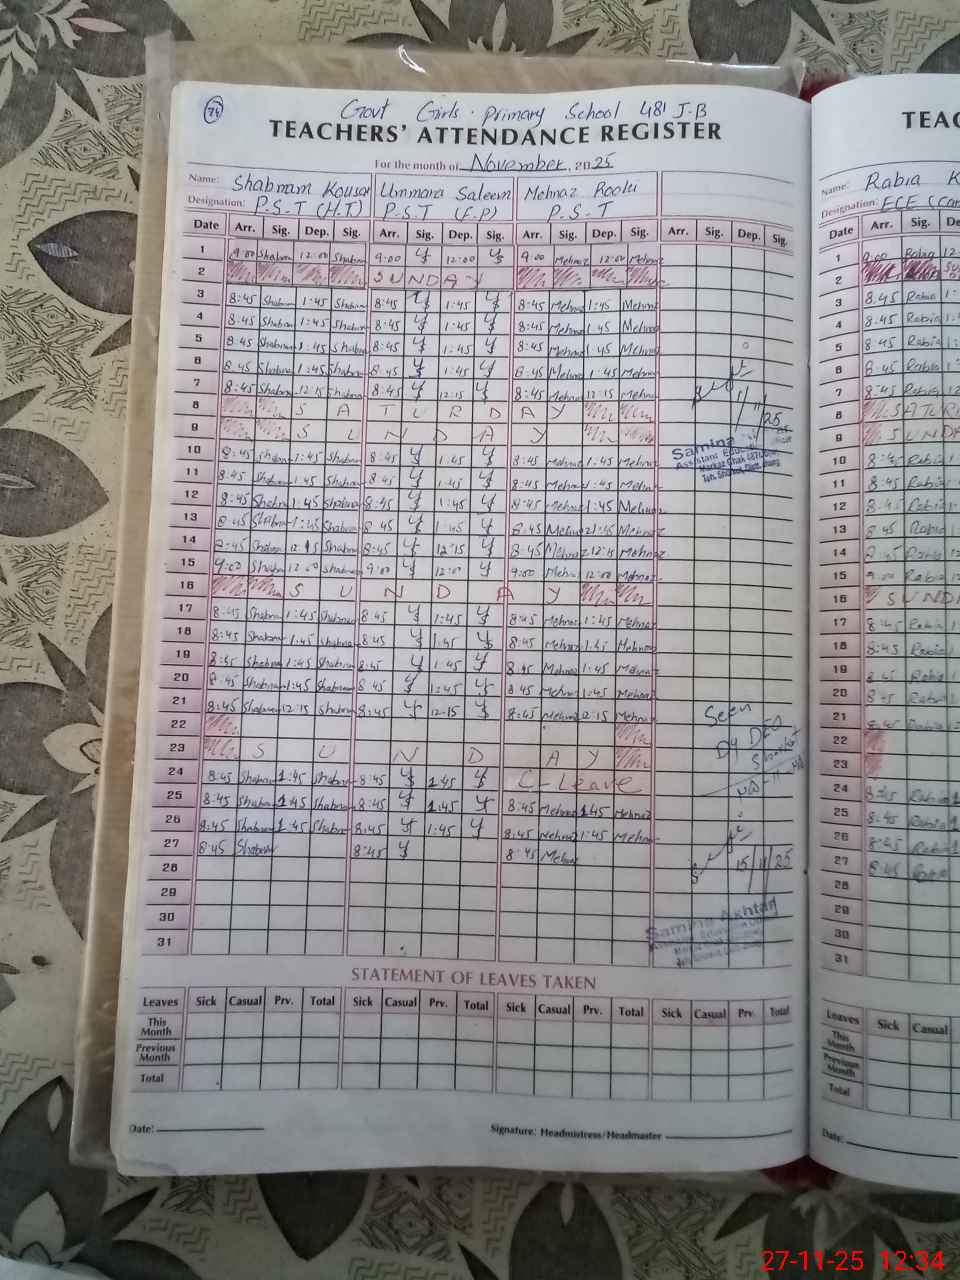 74
Govt Girls Primary School 481 J-B
TEACHERS' ATTENDANCE REGISTER
For the month of November, 2025
Name: Shabnam Kousar Ummara Saleem Mehnaz
Designation: P.S.T (H.T) P.S.T P.S.T
Date Arr. Sig. Dep. Sig. Arr. Sig. Dep. Sig. Arr. Sig. Dep. Sig. Arr. Sig. Dep. Sig.
1 9:00 Shabnam 12:00 Shabnam 9:00 12:00 9:00 Mehnaz 12:00 Mehnaz
2 SUNDAY
3 8:45 Shabnam 1:45 Shabnam 8:45 1:45 8:45 Mehnaz 1:45 Mehnaz
4 8:45 Shabnam 1:45 Shabnam 8:45 1:45 8:45 Mehnaz 1:45 Mehnaz
5 8:45 Shabnam 1:45 Shabnam 8:45 1:45 8:45 Mehnaz 1:45 Mehnaz
6 8:45 Shabnam 1:45 Shabnam 8:45 1:45 8:45 Mehnaz 1:45 Mehnaz
7 8:45 Shabnam 12:15 Shabnam 8:45 12:15 8:45 Mehnaz 12:15 Mehnaz
8 SATURDAY
9 SUNDAY
10 8:45 Shabnam 1:45 Shabnam 8:45 1:45 8:45 Mehnaz 1:45 Mehnaz
11 8:45 Shabnam 1:45 Shabnam 8:45 1:45 8:45 Mehnaz 1:45 Mehnaz
12 8:45 Shabnam 1:45 Shabnam 8:45 1:45 8:45 Mehnaz 1:45 Mehnaz
13 8:45 Shabnam 1:45 Shabnam 8:45 1:45 8:45 Mehnaz 1:45 Mehnaz
14 8:45 Shabnam 12:15 Shabnam 8:45 12:15 8:45 Mehnaz 12:15 Mehnaz
15 9:00 Shabnam 12:00 Shabnam 9:00 12:00 9:00 Mehnaz 12:00 Mehnaz
16 SUNDAY
17 8:45 Shabnam 1:45 Shabnam 8:45 1:45 8:45 Mehnaz 1:45 Mehnaz
18 8:45 Shabnam 1:45 Shabnam 8:45 1:45 8:45 Mehnaz 1:45 Mehnaz
19 8:45 Shabnam 1:45 Shabnam 8:45 1:45 8:45 Mehnaz 1:45 Mehnaz
20 8:45 Shabnam 1:45 Shabnam 8:45 1:45 8:45 Mehnaz 1:45 Mehnaz
21 8:45 Shabnam 12:15 Shabnam 8:45 12-15 8:45 Mehnaz 12:15 Mehnaz
22
23 SUNDAY
24 8:45 Shabnam 1:45 Shabnam 8:45 1:45 C-Leave
25 8:45 Shabnam 1:45 Shabnam 8:45 1:45 8:45 Mehnaz 1:45 Mehnaz
26 8:45 Shabnam 1:45 Shabnam 8:45 1:45 8:45 Mehnaz 1:45 Mehnaz
27 8:45 Shabnam 8:45 8:45 Mehnaz
28
29
30
31
Samina
Assistant
Seen
Dy DEO
15/11/25
Samina Akhtar
STATEMENT OF LEAVES TAKEN
Leaves Sick Casual Prv. Total Sick Casual Prv. Total Sick Casual Prv. Total Sick Casual Prv. Total
This Month
Previous Month
Total
Date:
Signature: Headmistress/Headmaster
Name: Rabia
Designation: ECE
Date Arr. Sig.
1 9:00 Rabia 12
2
3 8:45 Rabia
4 8:45 Rabia
5 8:45 Rabia
6 8:45 Rabia
7 8:45 Rabia
8
9 SUND
10 8:45 Rabia
11 8:45 Rabia
12 8:45 Rabia
13 8:45 Rabia
14 8:45 Rabia
15 9:00 Rabia
16 SUND
17 8:45 Rabia
18 8:45 Rabia
19 8:45 Rabia
20 8:45 Rabia
21 8:45 Rabia
22
23
24 8:45 Rabia
25 8:45 Rabia
26 8:45 Rabia
27 8:45
28
29
30
31
Leaves Sick Casual
This Month
Previous Month
Total
Date:
27-11-25 12:34